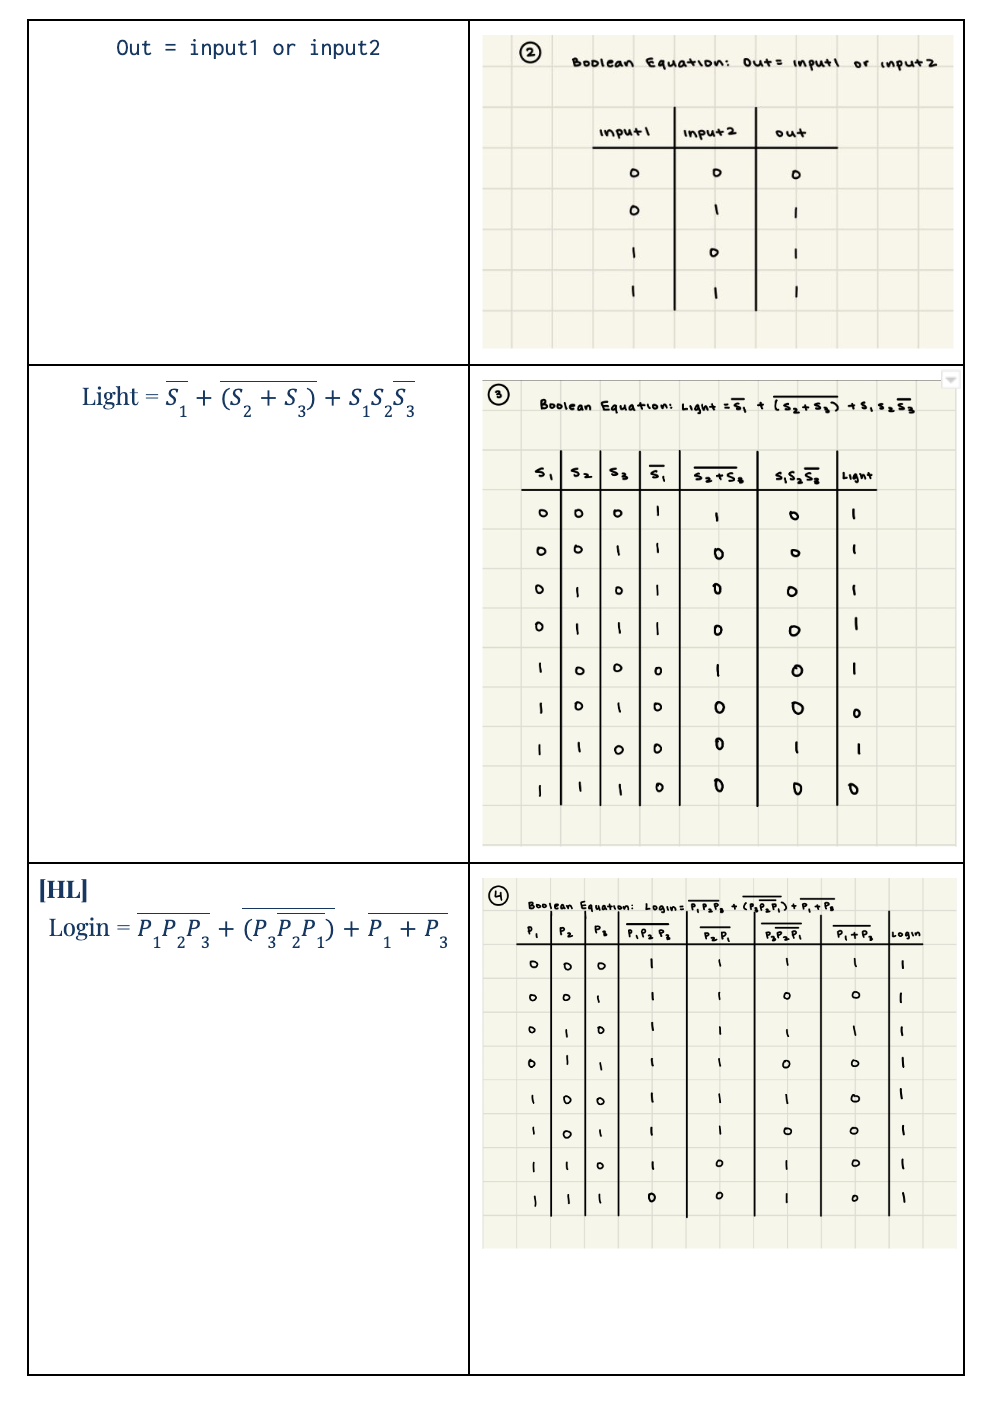 Out = input1 or input2
②
Boolean Equation: Out = input1 or input2
input1 input2 out
0 0 0
0 1 1
1 0 1
1 1 1
Light = S̅₁ + (S₂ + S₃)̅ + S₁S₂S̅₃
③
Boolean Equation: Light = S̅₁ + (S₂+S₃)̅ + S₁S₂S̅₃
S₁ S₂ S₃ S̅₁ S̅₂̅+̅S̅₃̅ S₁S₂S̅₃ Light
0 0 0 1 1 0 1
0 0 1 1 0 0 1
0 1 0 1 0 0 1
0 1 1 1 0 0 1
1 0 0 0 1 0 1
1 0 1 0 0 0 0
1 1 0 0 0 1 1
1 1 1 0 0 0 0
[HL]
Login = P̅₁̅P̅₂̅P̅₃̅ + (P₃P̅₂̅P̅₁̅)̅ + P̅₁̅ ̅+̅ ̅P̅₃̅
④
Boolean Equation: Login = P̅₁̅P̅₂̅P̅₃̅ + (P₃P̅₂̅P̅₁̅)̅ + P̅₁̅+̅P̅₃̅
P₁ P₂ P₃ P̅₁̅P̅₂̅P̅₃̅ P̅₂̅P̅₁̅ P̅₃̅P̅₂̅P̅₁̅ P̅₁̅+̅P̅₃̅ Login
0 0 0 1 1 1 1 1
0 0 1 1 1 0 0 1
0 1 0 1 1 1 1 1
0 1 1 1 1 0 0 1
1 0 0 1 1 1 0 1
1 0 1 1 1 0 0 1
1 1 0 1 0 1 0 1
1 1 1 0 0 1 0 1